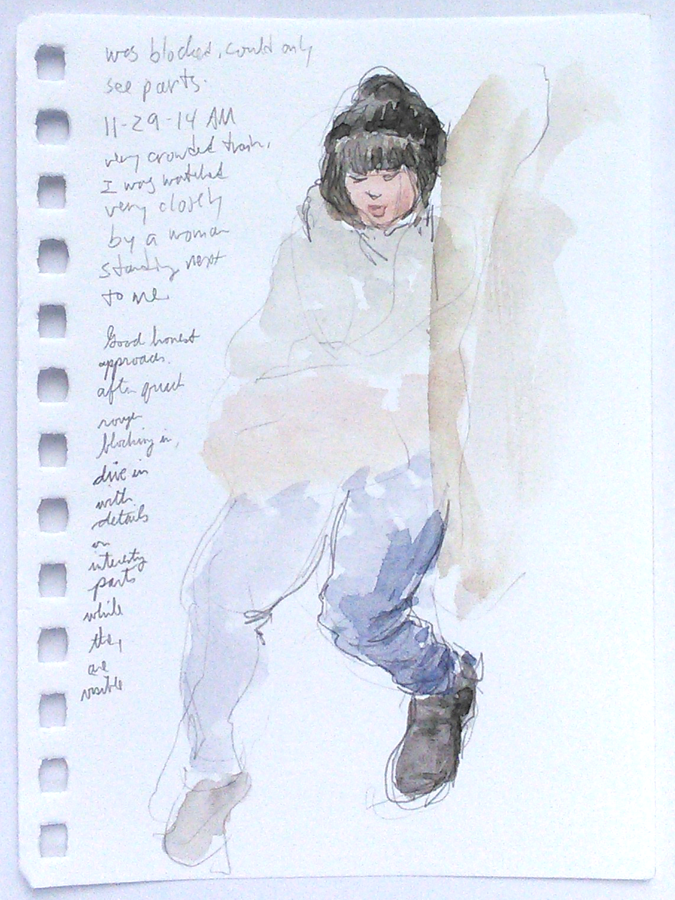 was blocked, could only
see parts.
11-29-14 AM
very crowded train,
I was watched
very closely
by a woman
standing next
to me.
Good honest
approach.
after quick
rough
blocking in,
dive in
with
details
on
interesting
parts
while
they
are
visible